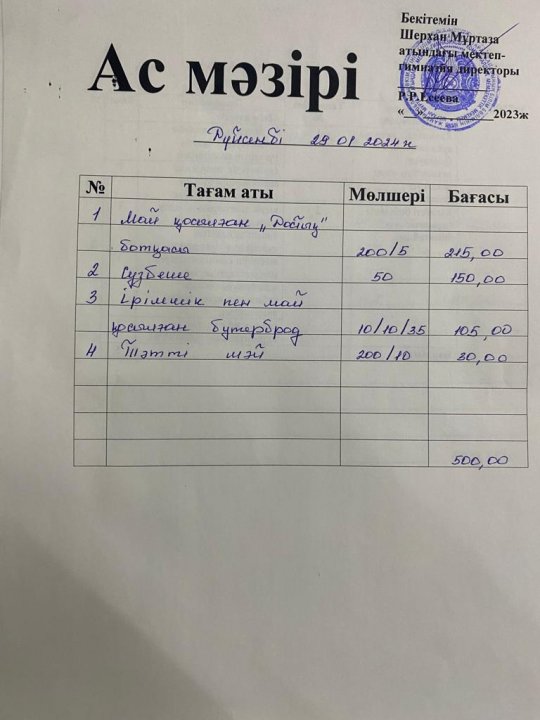 Бекітемін
Шерхан Мұртаза
атындағы мектеп-
гимназия директоры
Р.Р.Есеева
«___» ________ 2023ж
Ас мәзірі
Дүйсенбі 29 01 2024 ж
№ Тағам аты Мөлшері Бағасы
1 Май қосылған „Достық"
ботқасы 200/5 215,00
2 Сүзбеше 50 150,00
3 Ірімшік пен май
қосылған бутерброд 10/10/35 105,00
4 Тәтті шәй 200/10 30,00
500,00